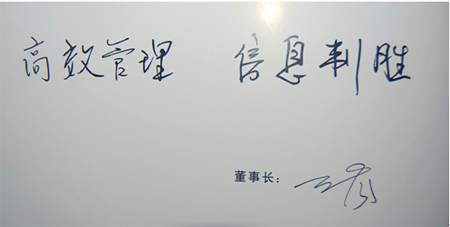 高效管理 信息制胜
董事长：